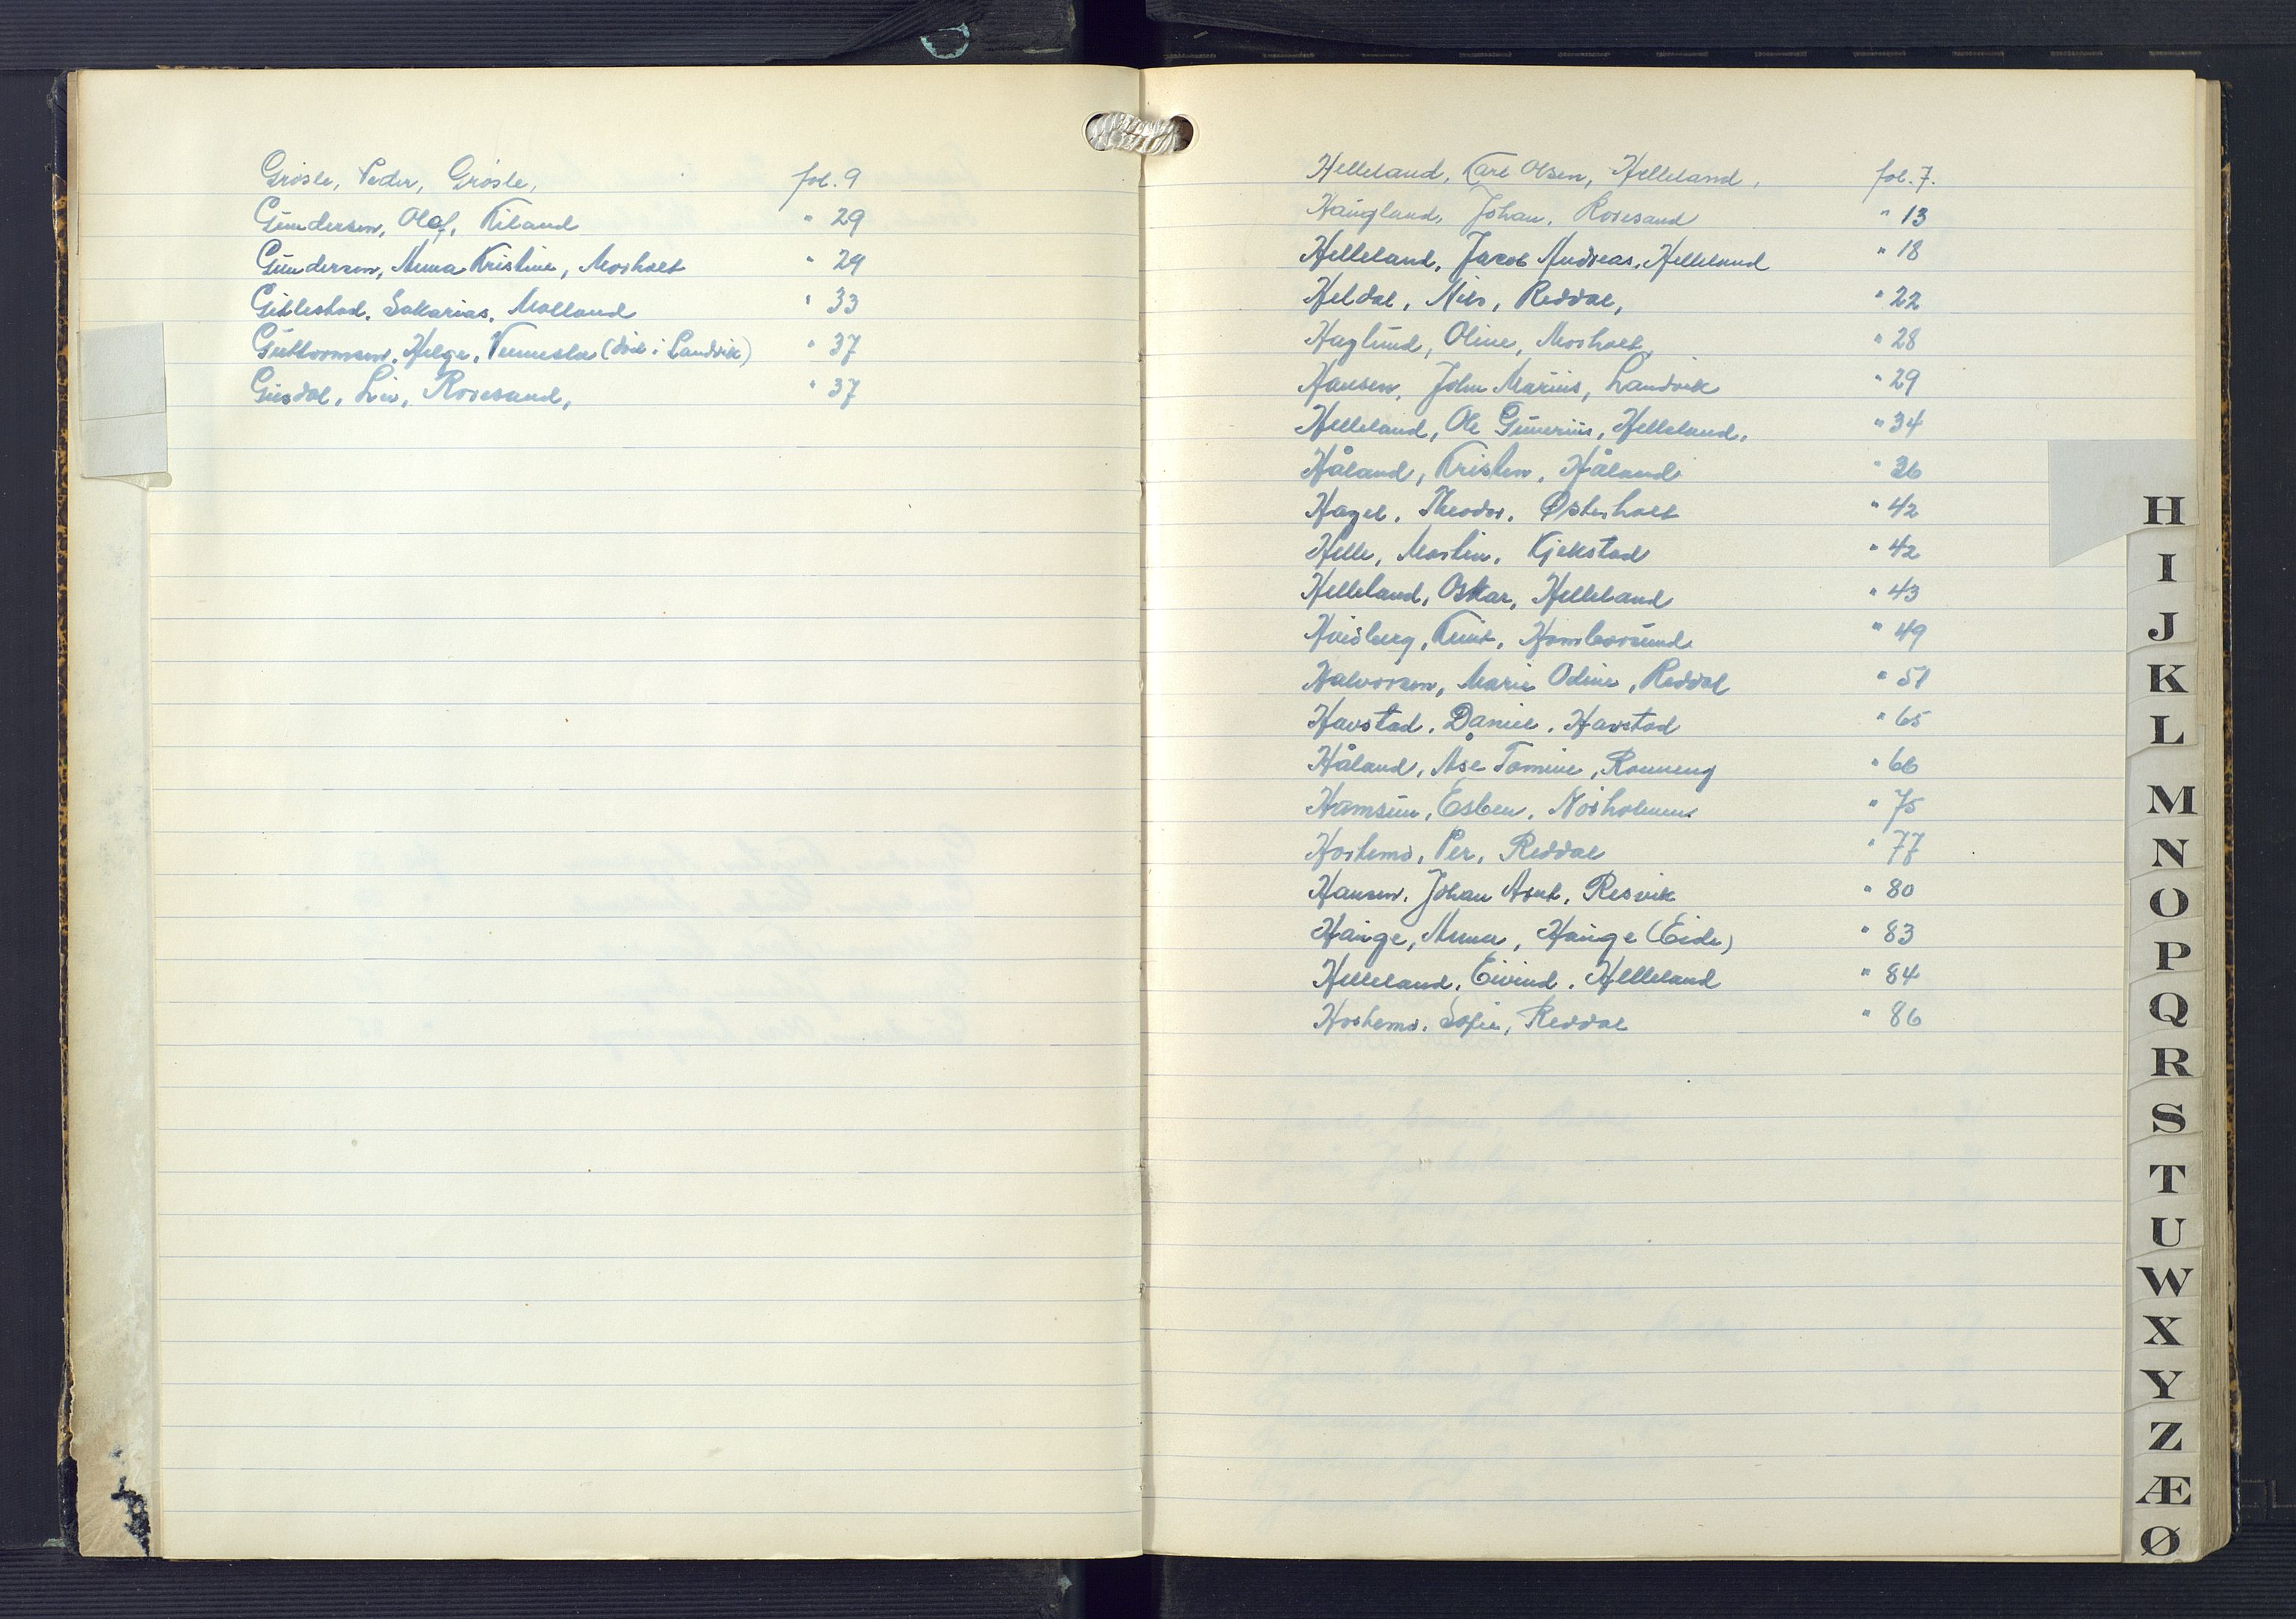 Grøsle, Peder, Grøsle, fol. 9
Gundersen, Olaf, Kiland " 29
Gundersen, Anna Kristine, Morholt " 29
Gitlestad, Sakarias, Molland " 33
Guttormsen, Helge, Vennesla (død i Landvik) " 37
Gusdal, Liv, Roresand, " 37
Helleland, Karl Olsen, Helleland, fol. 7.
Haugland, Johan, Roresand " 13
Helleland, Jacob Andreas, Helleland " 18
Heldal, Nils, Reddal, " 22
Haglund, Oline, Morholt, " 28
Hansen, John Marius, Landvik " 29
Helleland, Ole Gunerius, Helleland, " 34
Håland, Kristen, Håland " 36
Hagel, Theodor, Østerholt " 42
Helle, Martin, Kjekstad " 42
Helleland, Oskar, Helleland " 43
Knut, Homborsund " 49
Halvorsen, Marie Odine, Reddal " 51
Havstad, Daniel, Havstad " 65
Håland, Åse Tomine, Rønneng " 66
Hamsun, Esben, Nørholmen " 75
Hortemo, Per, Reddal " 77
Hansen, Johan Arnt, Resvik " 80
Hauge, Anna, Hauge (Eide) " 83
Helleland, Eivind, Helleland " 84
Hortemo, Sofie, Reddal " 86
H
I
J
K
L
M
N
O
P
Q
R
S
T
U
W
X
Y
Z
Æ
Ø